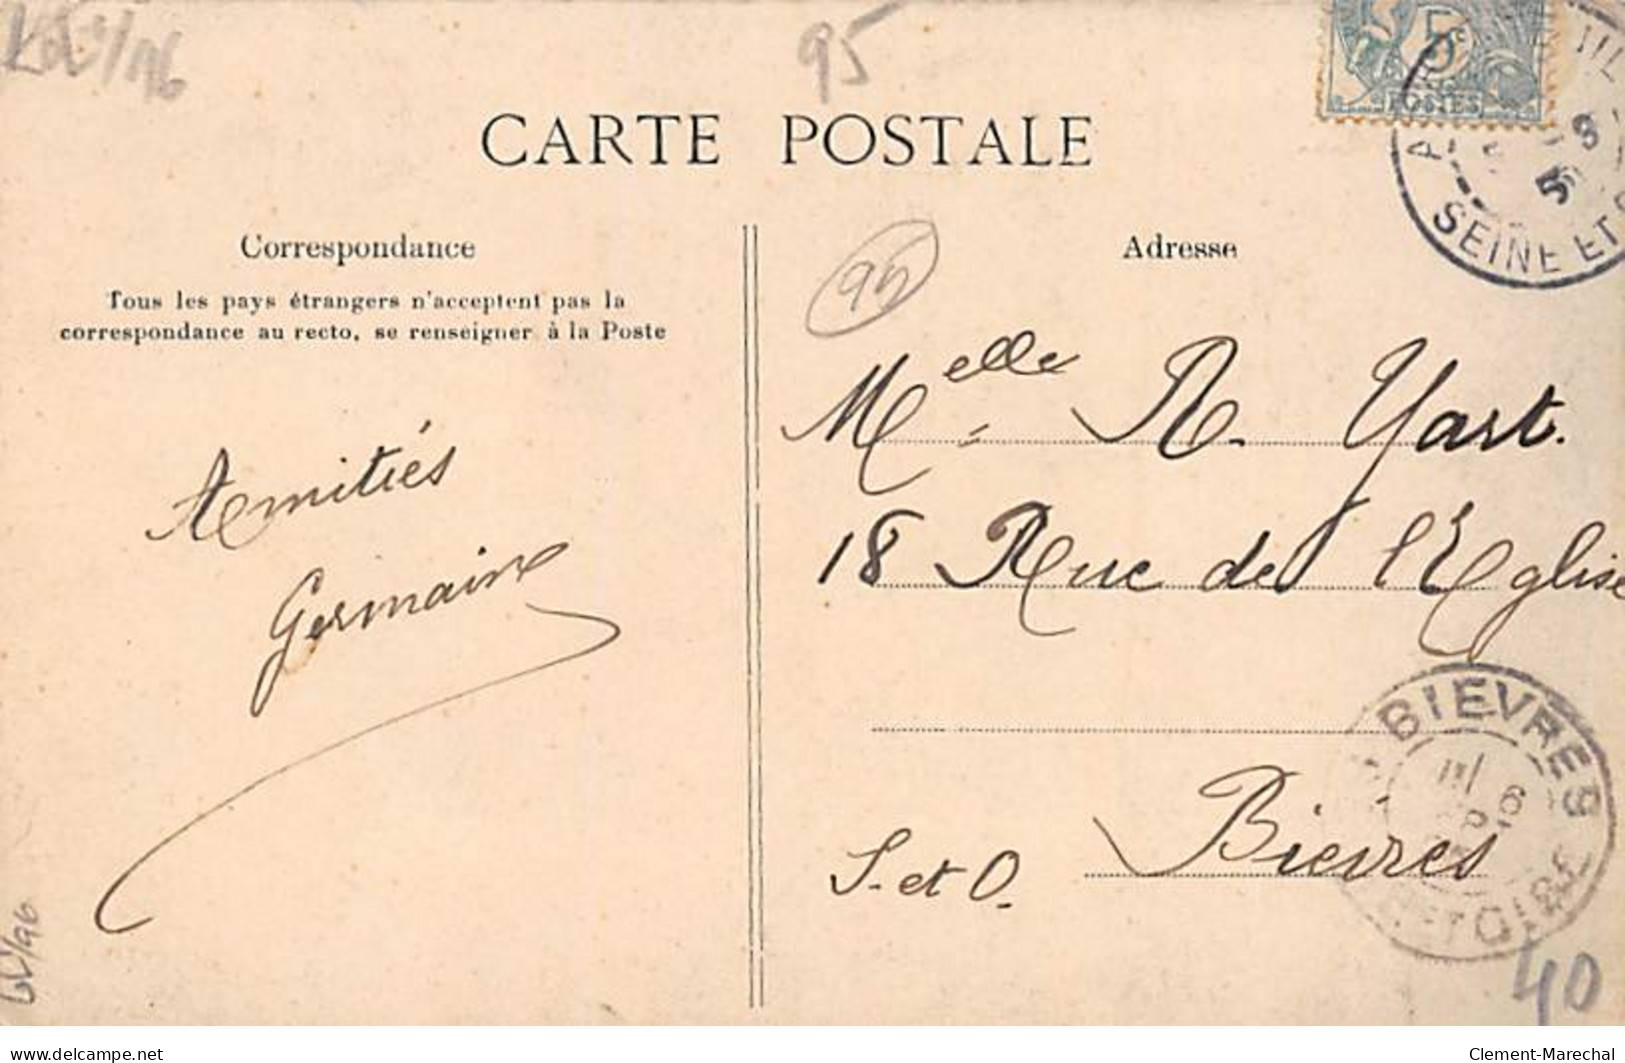 95
5c
POSTES
CARTE POSTALE
SEINE ET
Correspondance
Tous les pays étrangers n'acceptent pas la
correspondance au recto, se renseigner à la Poste
Amitiés
Germaine
Adresse
95
Melle R. Yart.
18 Rue de l'Eglise
Bièvres
S. et O.
BIEVRES
40
delcampe.net
Clement-Marechal